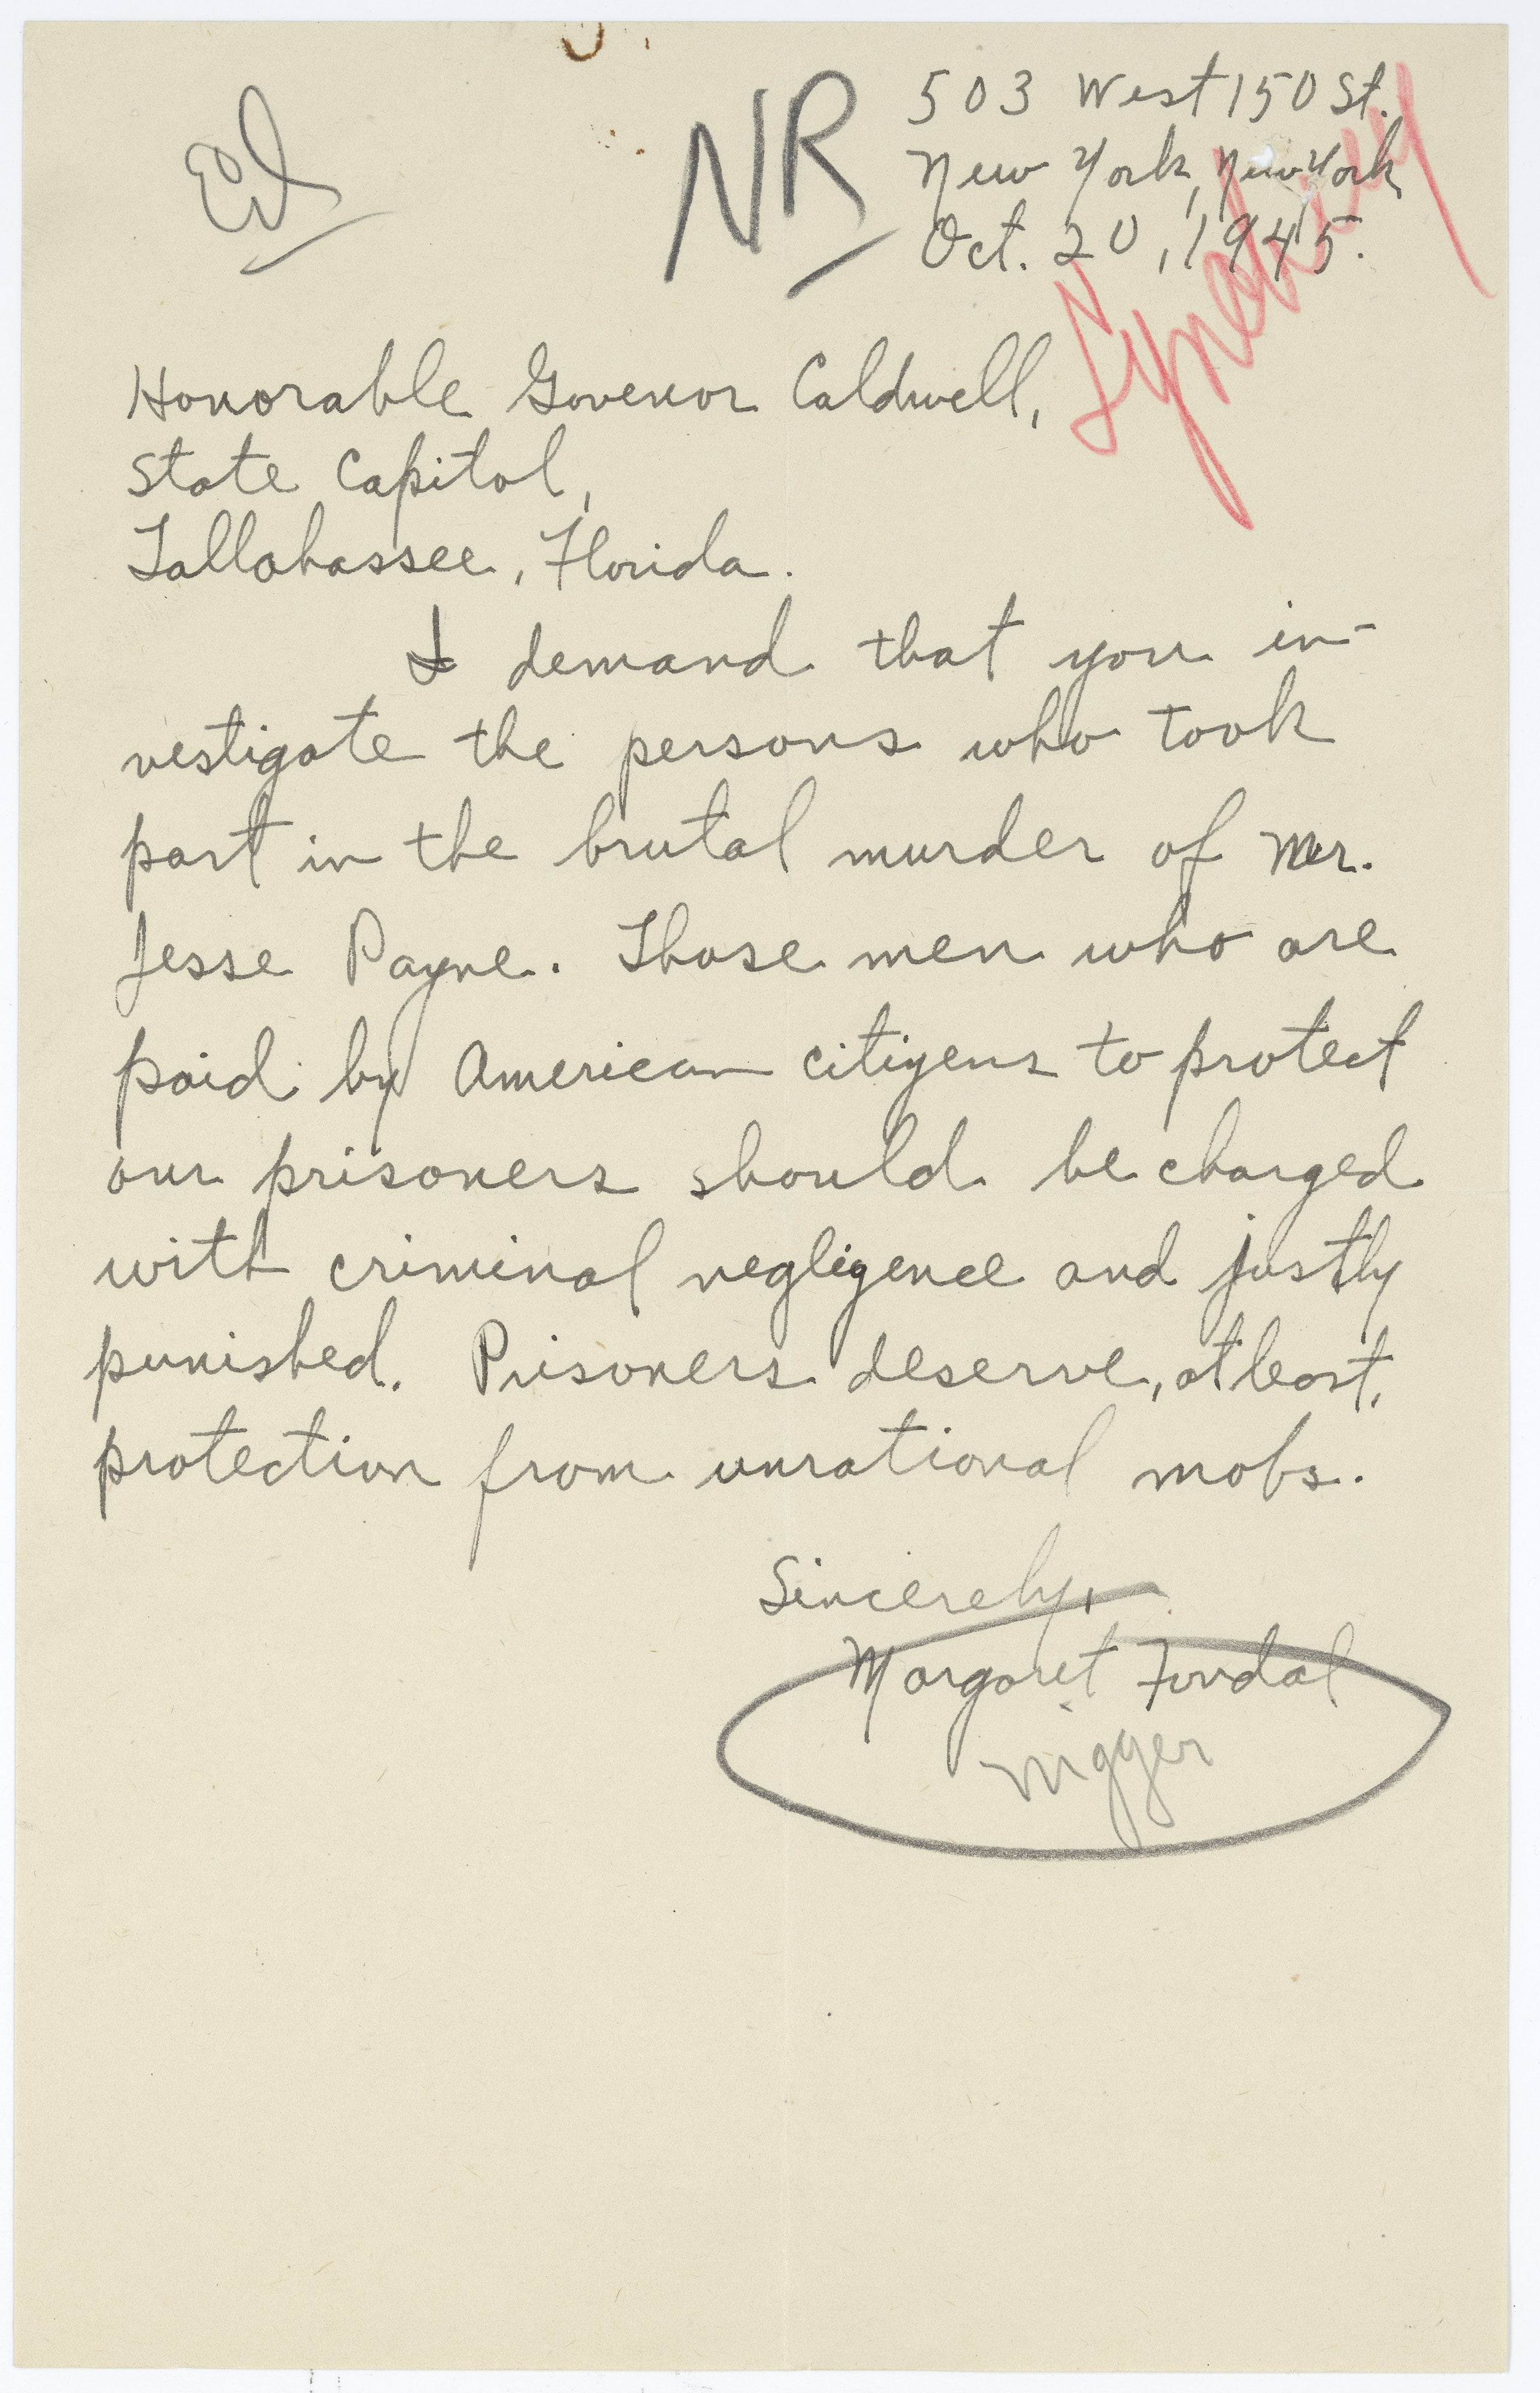 Ed
NR
503 West 150 St.
New York, New York
Oct. 20, 1945.
Lynching
Honorable Govenor Caldwell,
State Capitol,
Tallahassee, Florida.
I demand that you in-
vestigate the persons who took
part in the brutal murder of Mr.
Jesse Payne. Those men who are
paid by American citizens to protect
our prisoners should be charged
with criminal negligence and justly
punished. Prisoners deserve, at least,
protection from unrational mobs.
Sincerely,
Margaret
nigger